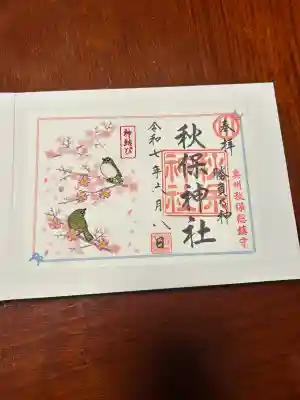 奉拝
勝負の神
奥州秋保総鎮守
秋保神社
令和七年六月八日
神結び